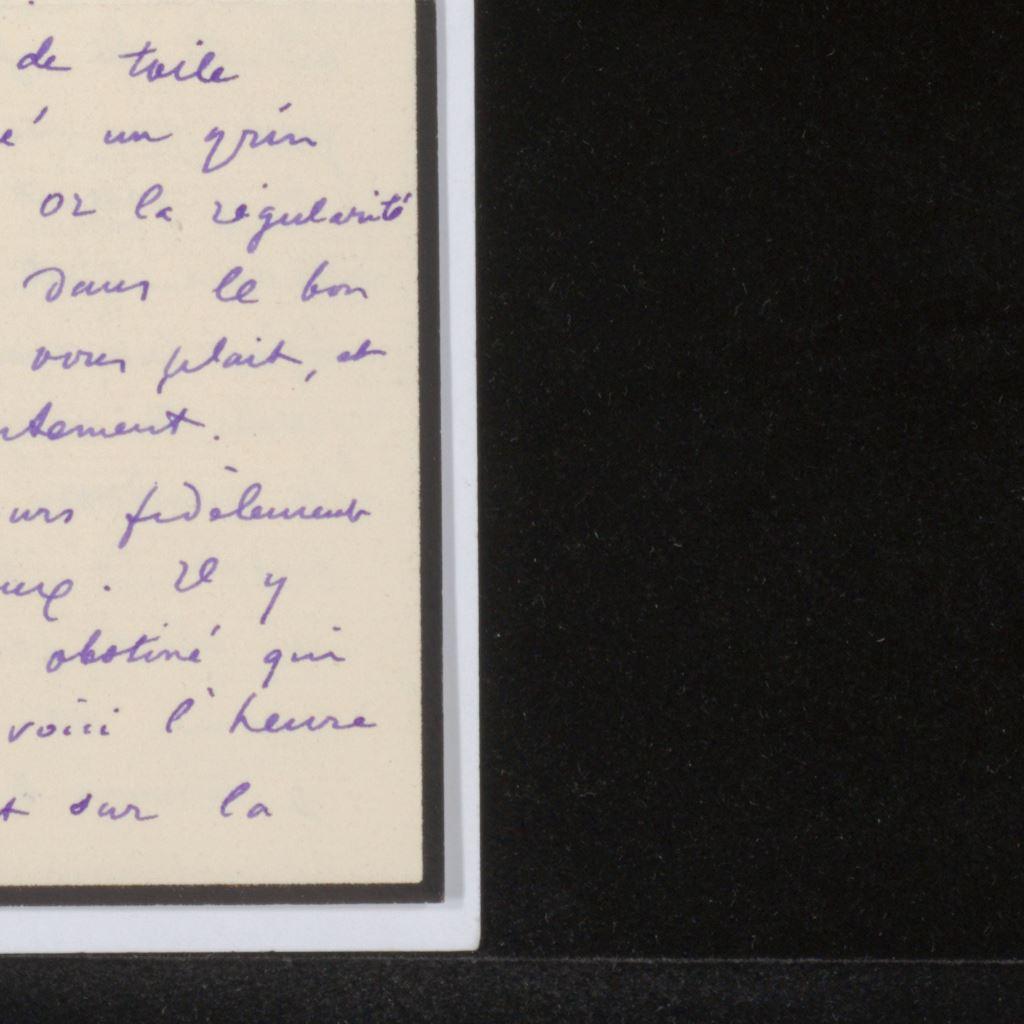 de toile
é un grin
or la régularité
dans le bon
vous plait, et
tement.
urs fidèlement
eux. Il y
obstiné qui
voici l'heure
t sur la